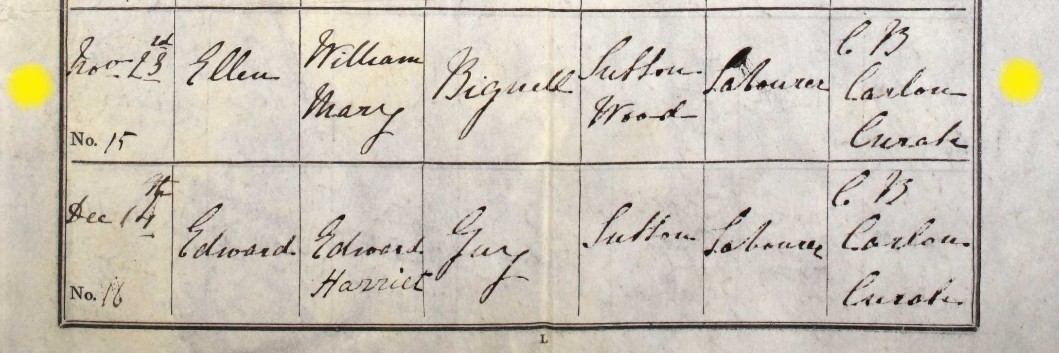 Novr 23rd Ellen William Mary Bignell Sutton Wood Labourer C B Carlon Curate
No. 15
Dec 14th Edward Edward Harriet Guy Sutton Labourer C B Carlon Curate
No. 16
L